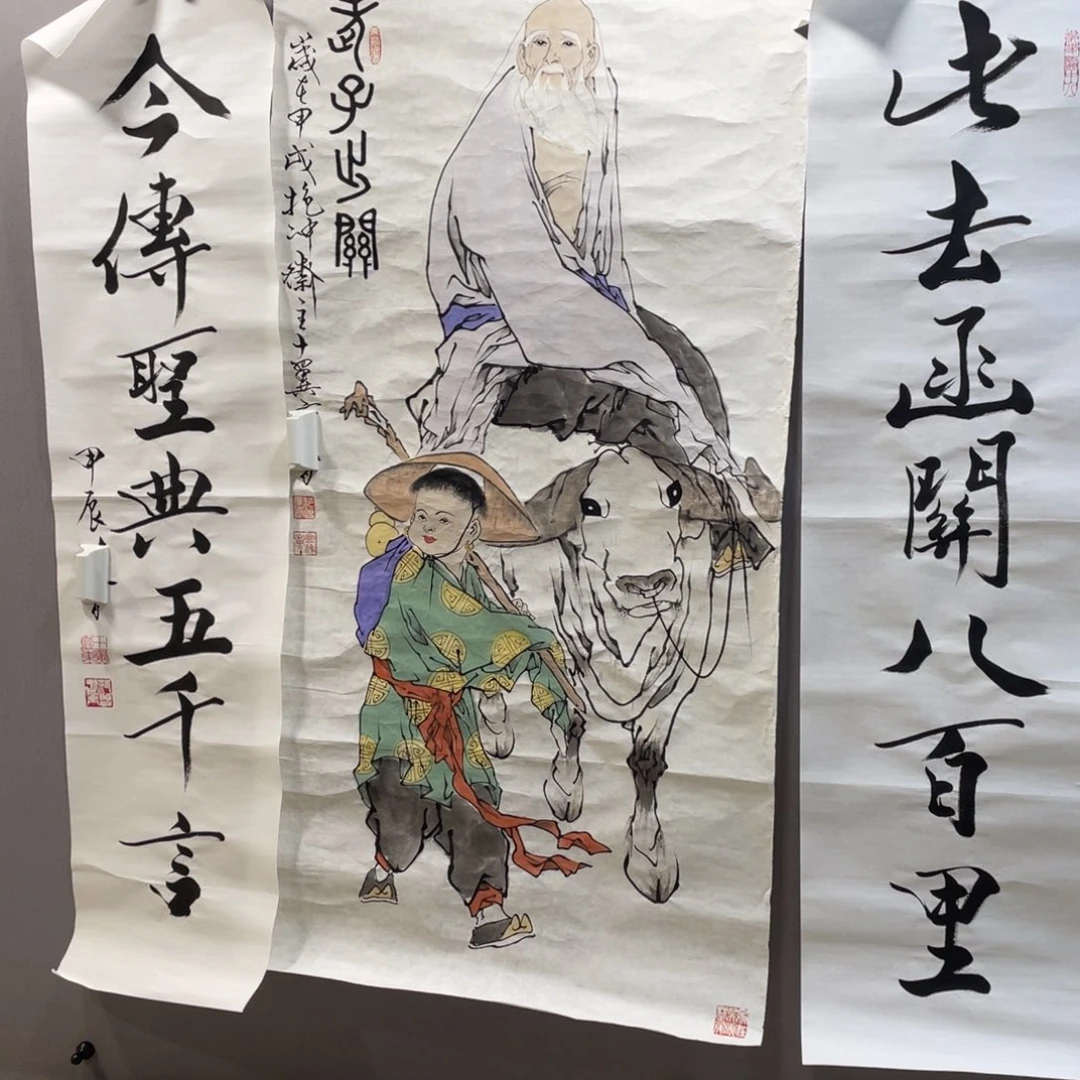 此去函關八百里
老子出關
歲在甲戌抱冲齋主十翼
今傳聖典五千言
甲辰